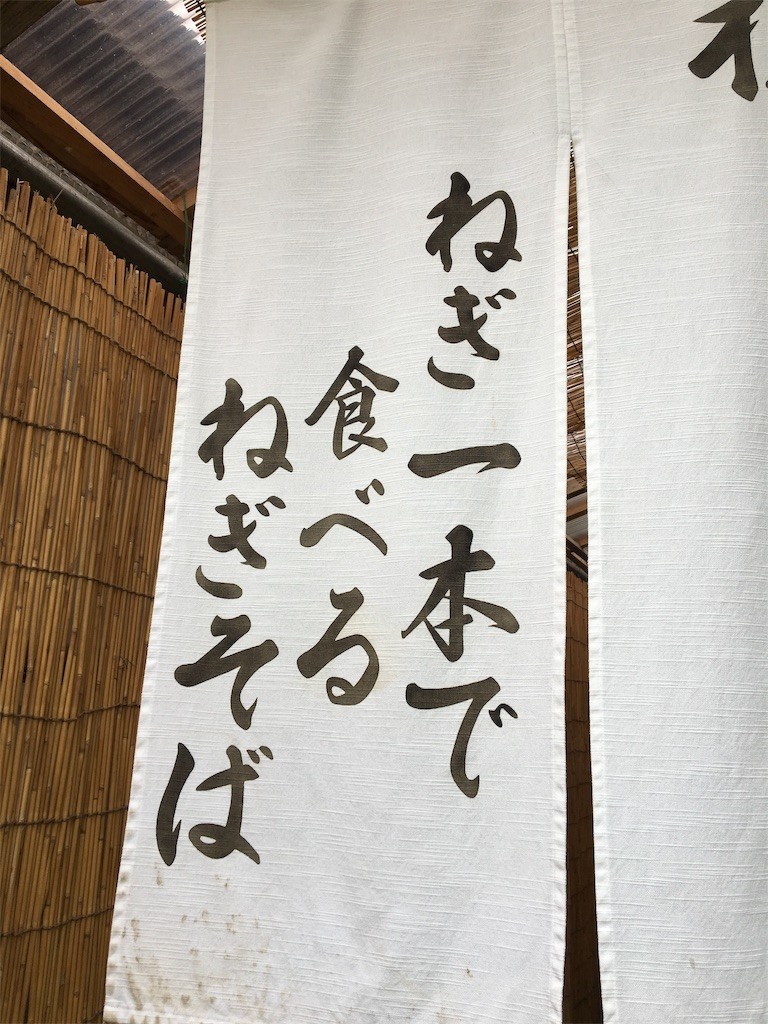 ねぎ一本で
食べる
ねぎそば